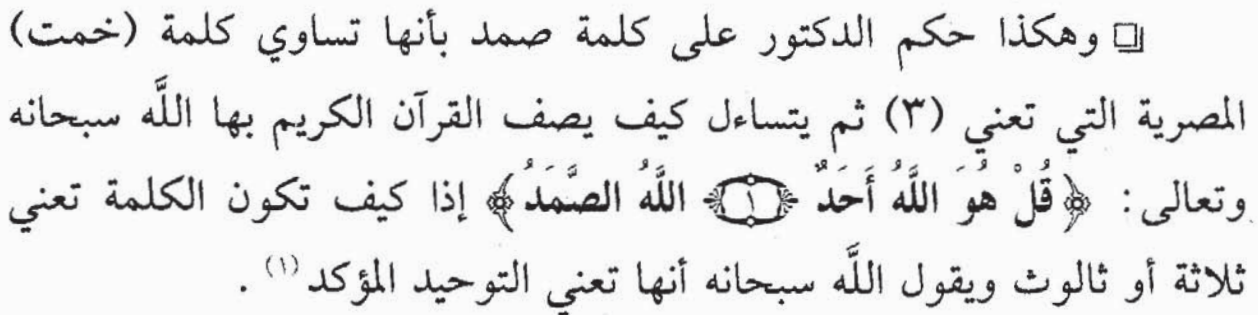 ❏ وهكذا حكم الدكتور على كلمة صمد بأنها تساوي كلمة (خمت)
المصرية التي تعني (٣) ثم يتساءل كيف يصف القرآن الكريم بها اللَّه سبحانه
وتعالى: ﴿قُلْ هُوَ اللَّهُ أَحَدٌ ﴿١﴾ اللَّهُ الصَّمَدُ﴾ إذا كيف تكون الكلمة تعني
ثلاثة أو ثالوث ويقول اللَّه سبحانه أنها تعني التوحيد المؤكد (١) .